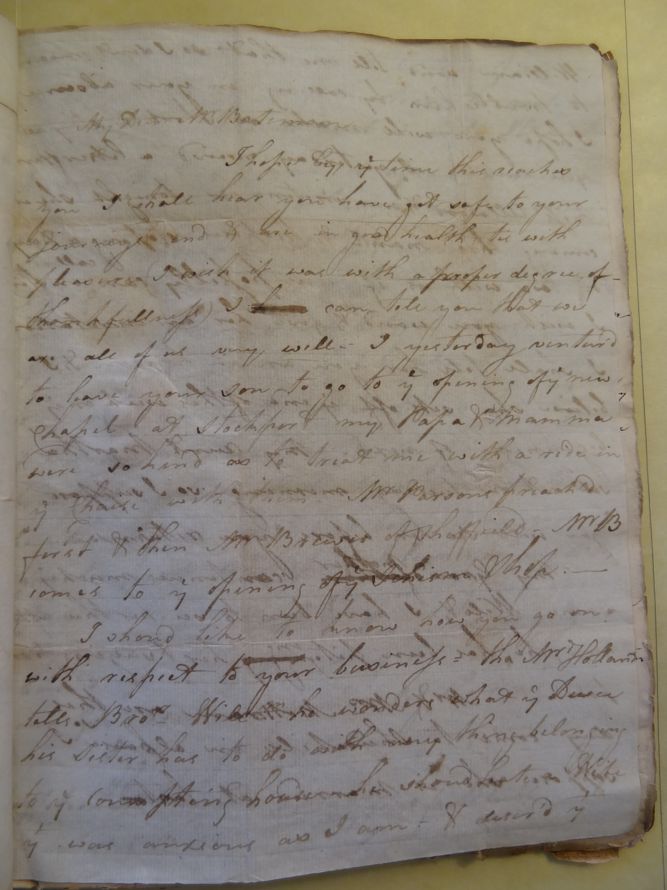 My Dear Mr Bateman
I hope by ye time this reaches
you I shall hear you have got safe to your
journeys end & are in good health tis with
pleasure I wish it was with a proper degree of
thankfullness) I can tell you that we
are all of us very well - I yesterday ventur'd
to leave your son to go to ye opening of ye new
Chapel at Stockport my Papa & Mamma
were so kind as to treat me with a ride in
ye Chaise with them Mr Parsons preach'd
first & then Mr of Sheffield - Mr B
comes to ye opening of ye -
I shoud like to know how you go on
with respect to your business - tho Mr Holland
tells Bror Willm he wonders what ye Deuce
his sister has to do with any thing belonging
to ye Compting house - he shoud have a Wife
yt was anxious as I am - & desir'd ye